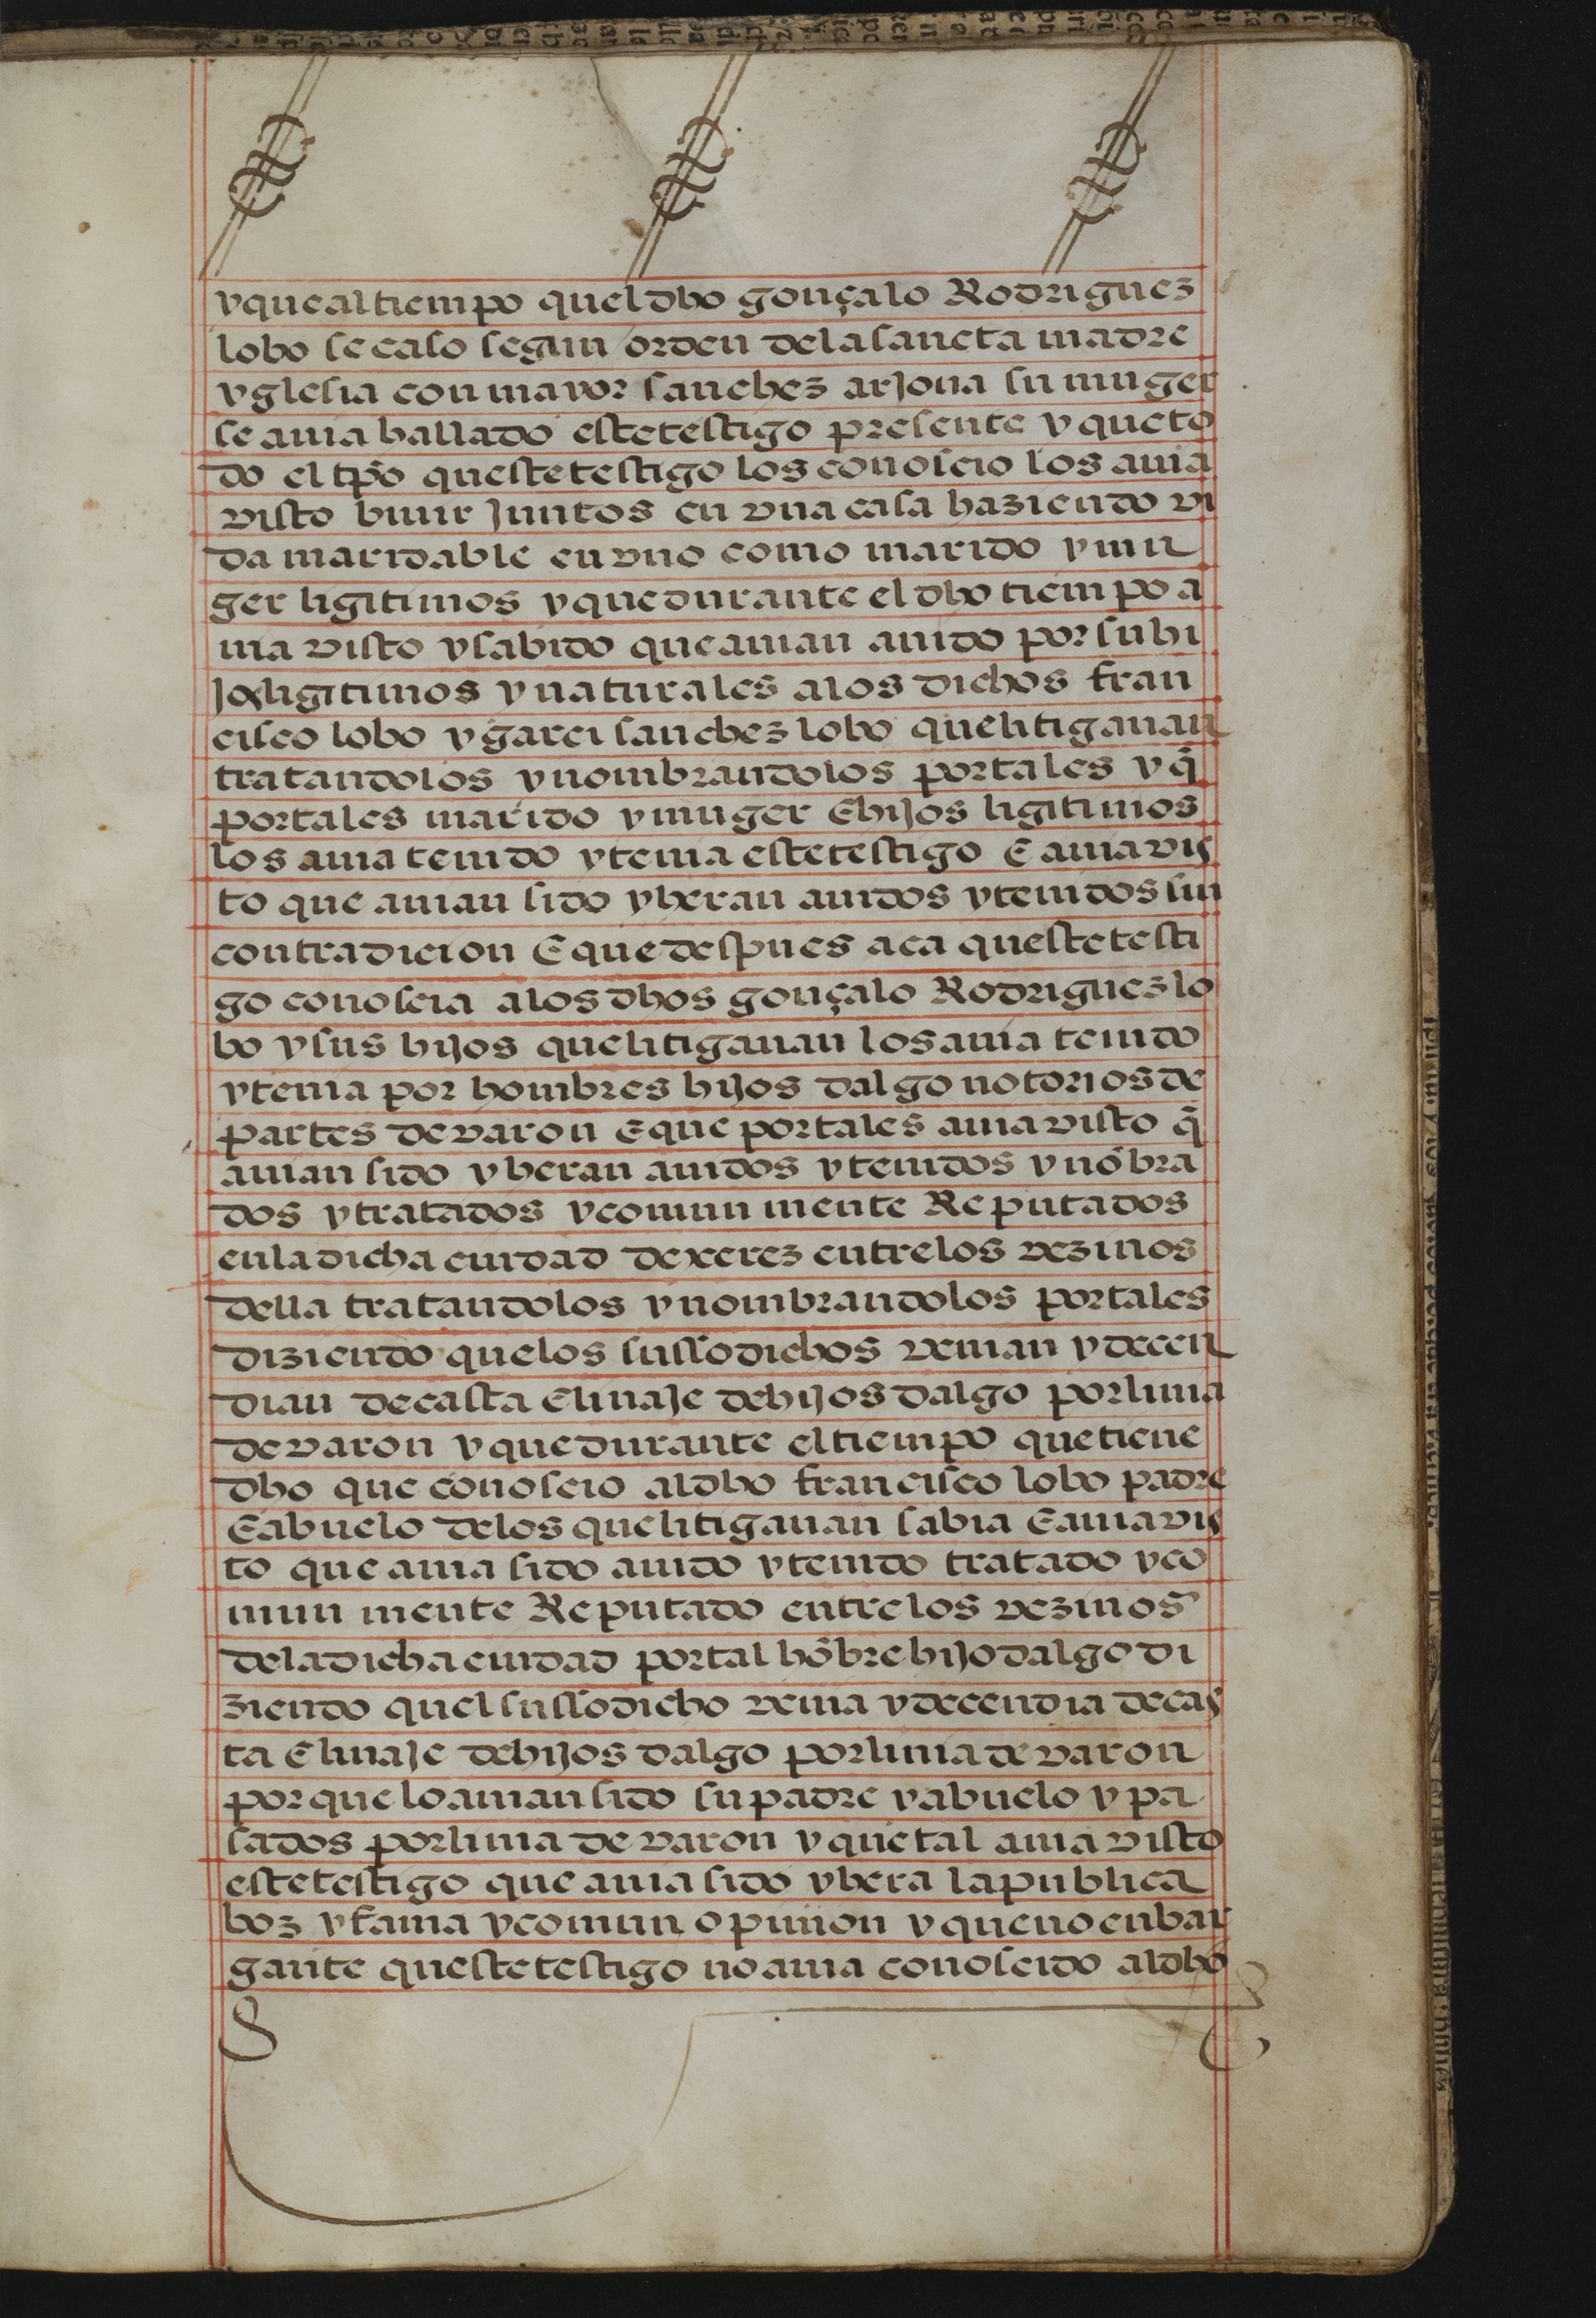 y que al tiempo quel dho gonçalo Rodriguez
lobo se caso segun orden de la sancta madre
yglesia con mayor sanchez arjona su muger
se auia hallado este testigo presente y que to
do el tpo queste testigo los conoscio los auia
visto biuir juntos en vna casa haziendo vi
da maridable en vno como marido y mu
ger ligitimos y que durante el dho tiempo a
uia visto y sabido que auian auido por su hi
jos ligitimos y naturales a los dichos fran
cisco lobo y garci sanchez lobo que litigauan
tratandolos y nombrandolos por tales y q̃
por tales marido y muger E hijos ligitimos
los auia tenido y tenia este testigo E auia vis
to que auian sido y heran auidos y tenidos sin
contradicion E que despues aca queste testi
go conoscia a los dhos gonçalo Rodriguez lo
bo y sus hijos que litigauan los auia tenido
y tenia por hombres hijos dalgo notorios de
partes de varon E que por tales auia visto q̃
auian sido y heran auidos y tenidos y nõbra
dos y tratados y comun mente Reputados
en la dicha ciudad de xerez entre los vezinos
della tratandolos y nombrandolos por tales
diziendo que los sussodichos venian y decen
dian de casta E linaje de hijos dalgo por linia
de varon y que durante el tiempo que tiene
dho que conoscio al dho francisco lobo padre
E abuelo de los que litigauan sabia E auia vis
to que auia sido auido y tenido tratado y co
mun mente Reputado entre los vezinos
de la dicha ciudad por tal hõbre hijo dalgo di
ziendo quel sussodicho venia y decendia de cas
ta E linaje de hijos dalgo por linia de varon
por que lo auian sido su padre y abuelo y pa
sados por linia de varon y que tal auia visto
este testigo que auia sido y hera la publica
boz y fama y comun opinion y que no enbar
gante queste testigo no auia conoscido al dho